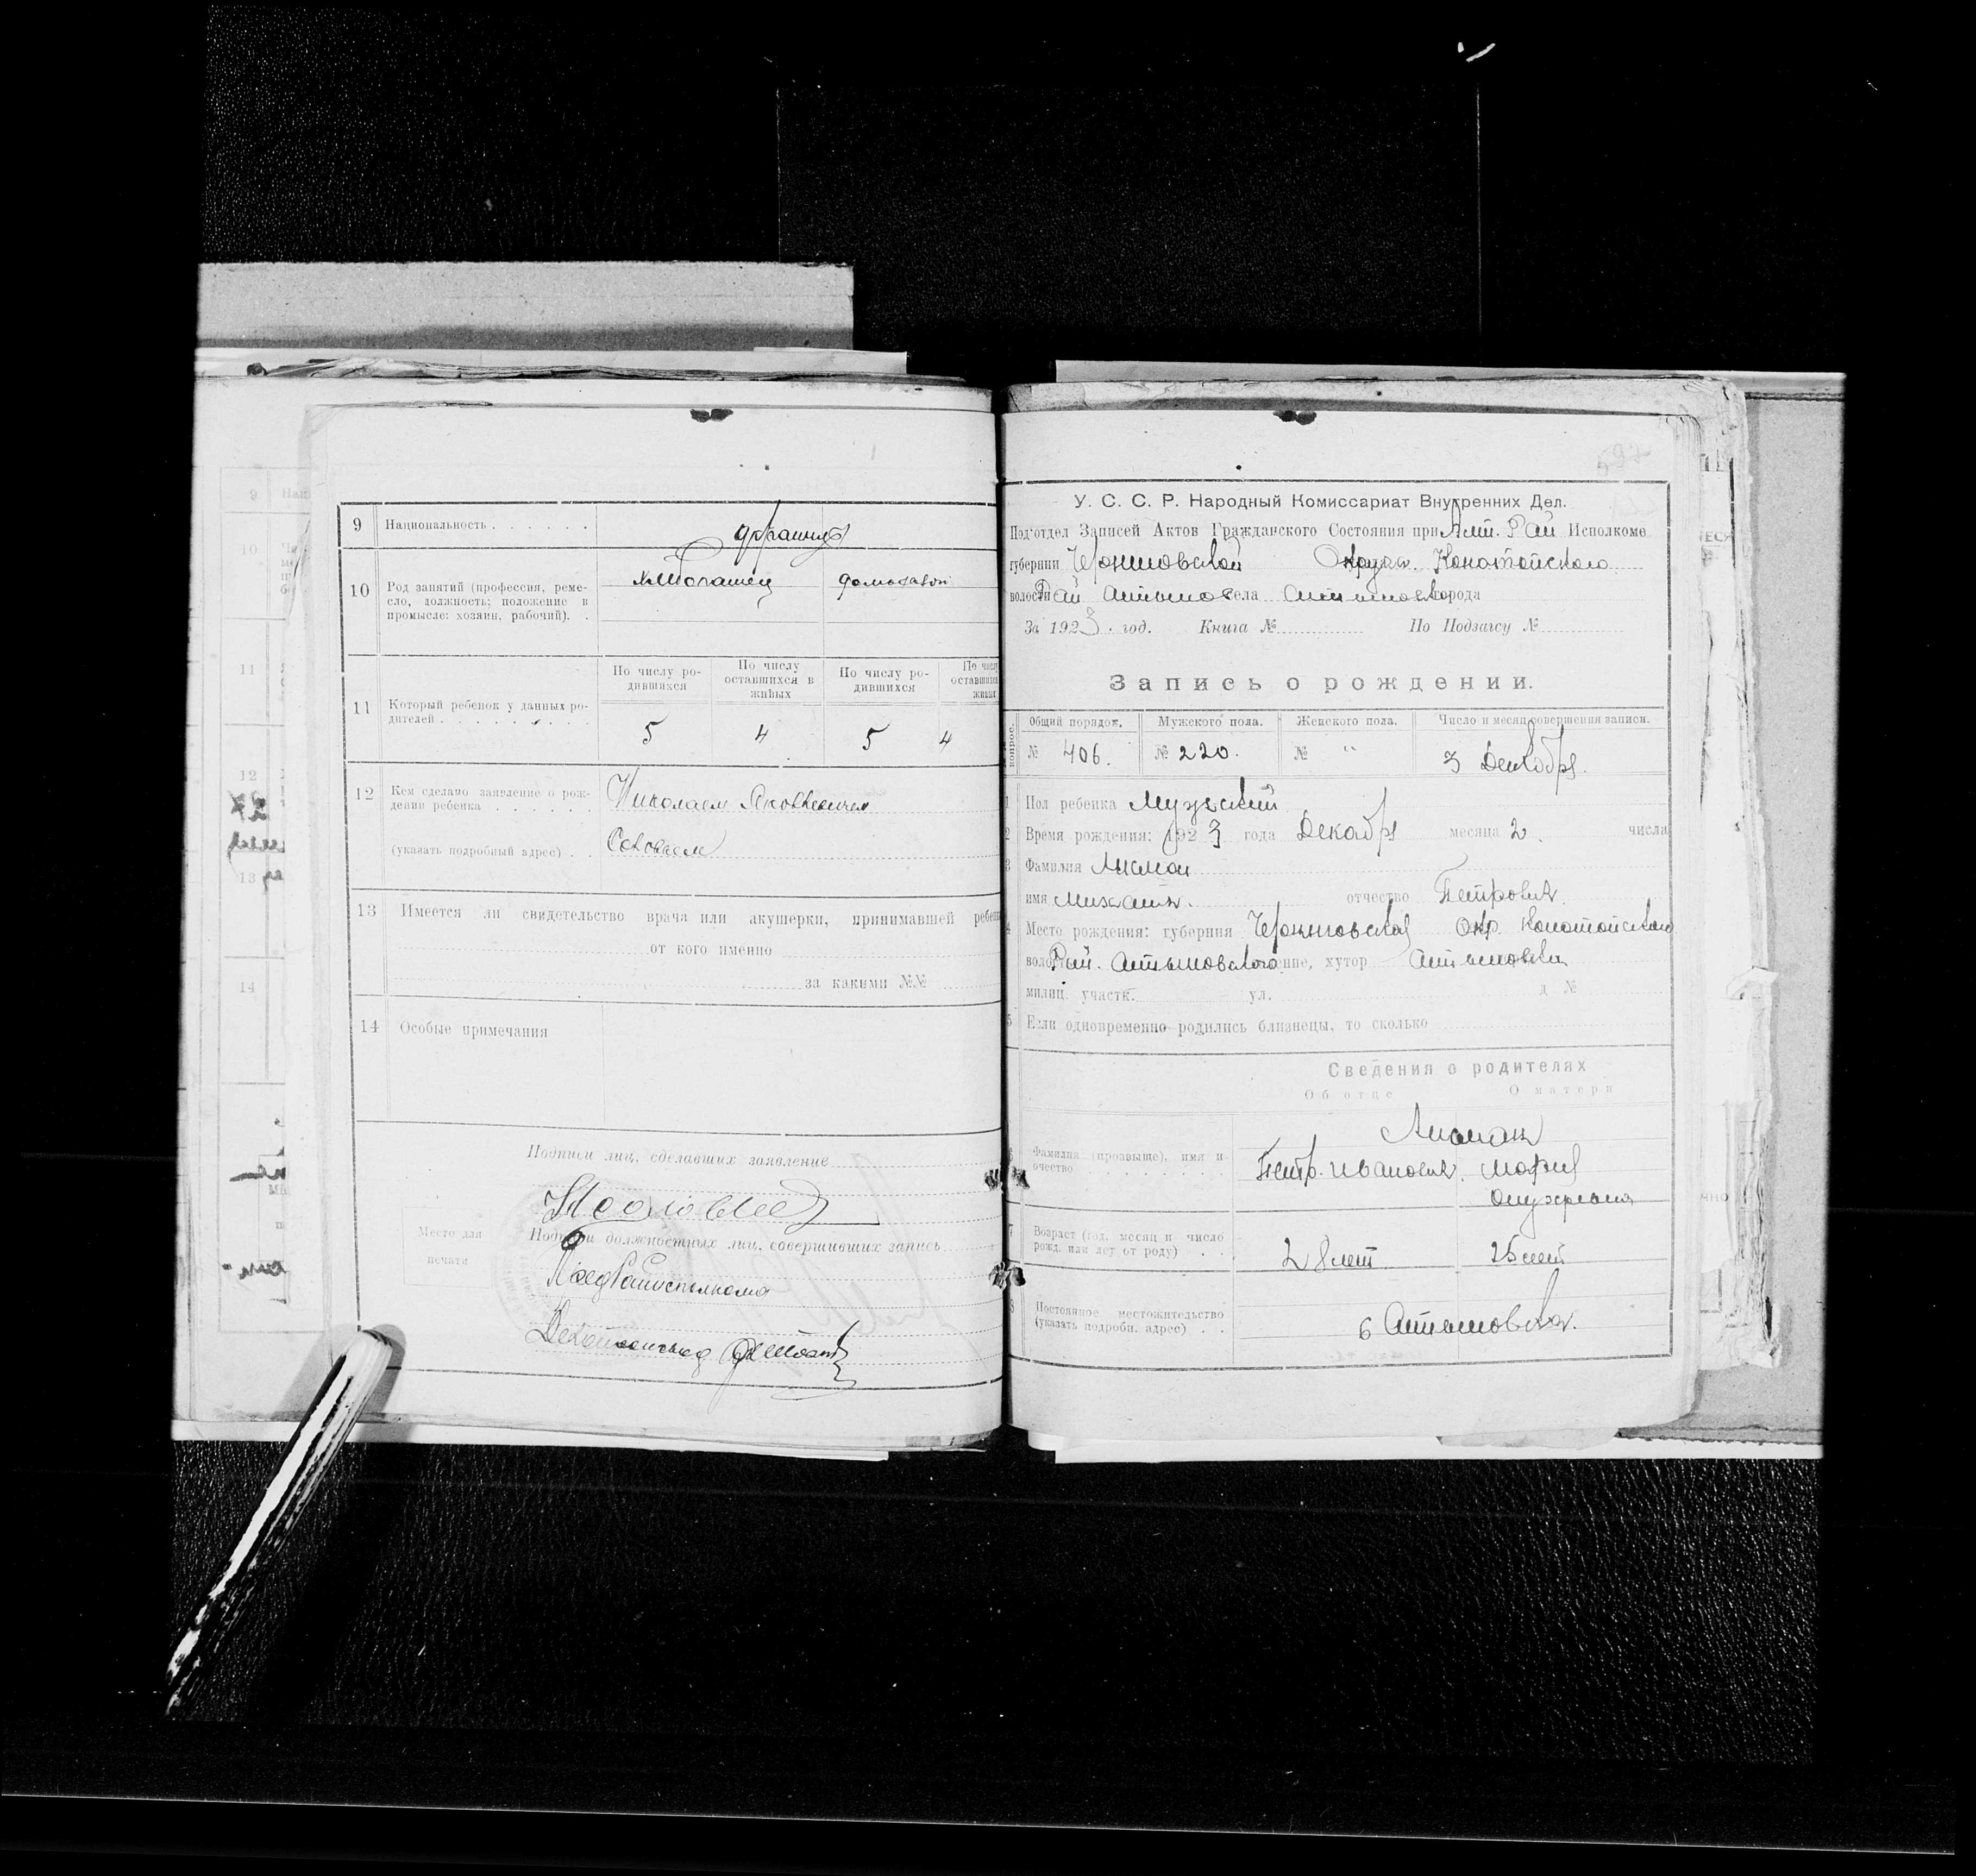 9 Национальность
10 Род занятий (профессия, реме-
сло, должность; положение в
промысле: хозяин, рабочий).
11 Который ребенок у данных ро-
дителей
По числу ро-
дившихся
По числу
оставшихся в
живых
По числу ро-
дившихся
По числ
оставшихся
живых
5 4 5 4
12 Кем сделано заявление о рож-
дении ребенка Николаем Яковлевичем
(указать подробный адрес)
13 Имеется ли свидетельство врача или акушерки, принимавшей ребен
от кого именно
за какими №№
14 Особые примечания
Подписи лиц, сделавших заявление
Место для
печати
Подписи должностных лиц, совершивших запись
ПредРайисполкома
У. С. С. Р. Народный Комиссариат Внутренних Дел.
Под'отдел Записей Актов Гражданского Состояния при Алт. Рай Исполкоме
губернии Черниговской Округа Конотопского
волости Рай Алтыновс села Алтыновка города
За 1923 год. Книга № По Подзагсу №
Запись о рождении.
Общий порядок. Мужского пола. Женского пола. Число и месяц совершения записи.
№ 406. № 220. № " 3 Декабря.
1 Пол ребенка Мужский
2 Время рождения: 1923 года Декабря месяца 2. числа
3 Фамилия Лисман
имя Михаил. отчество Петрович
4 Место рождения: губерния Черниговская Окр. Конотопского
Рай. Алтыновского ение, хутор Алтыновка
милиц. участк. ул. д №
5 Если одновременно родились близнецы, то сколько
Сведения о родителях
Об отце О матери
Фамилия (прозвище), имя и о-
чество Петр. Иванович. Мария
Онуфриевна
7 Возраст (год, месяц и число
рожд. или лет от роду) 28 лет 25 лет
8 Постоянное местожительство
(указать подробн. адрес) с Алтыновка.